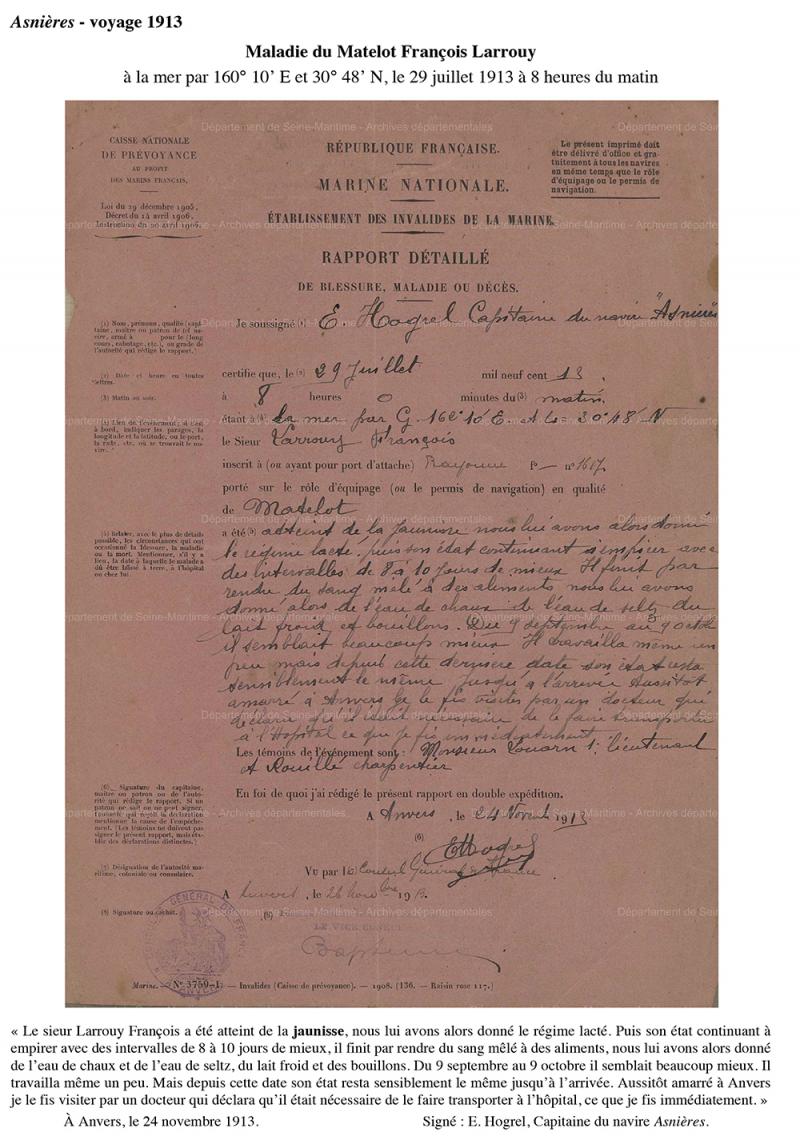 Asnières - voyage 1913
Maladie du Matelot François Larrouy
à la mer par 160° 10’ E et 30° 48’ N, le 29 juillet 1913 à 8 heures du matin
CAISSE NATIONALE
DE PRÉVOYANCE
AU PROFIT
DES MARINS FRANÇAIS.
Loi du 29 décembre 1905.
Décret du 14 avril 1906.
Instruction du 20 avril 1906.
RÉPUBLIQUE FRANÇAISE.
MARINE NATIONALE.
ÉTABLISSEMENT DES INVALIDES DE LA MARINE.
RAPPORT DÉTAILLÉ
DE BLESSURE, MALADIE OU DÉCÈS.
Le présent imprimé doit
être délivré d'office et gra-
tuitement à tous les navires
en même temps que le rôle
d'équipage ou le permis de
navigation.
Département de Seine-Maritime - Archives départementales
(1) Nom, prénoms, qualité (capi-
taine, maître ou patron de tel na-
vire, armé à pour le (long
cours, cabotage, etc.), ou grade de
l'autorité qui rédige le rapport.
Je soussigné (1) E. Hogrel Capitaine du navire "Asnières
(2) Date et heure en toutes
lettres.
certifie que, le (2) 29 Juillet mil neuf cent 13.
(3) Matin ou soir.
à 8 heures 0 minutes du (3) matin.
(4) Lieu de l'événement; si c'est
à bord, indiquer les parages, la
longitude et la latitude, ou le port,
la rade, etc. où se trouvait le na-
vire.
étant à (4) la mer par G. 160° 10' E. et L = 30° 48' N
le Sieur Larrouy François
inscrit à (ou ayant pour port d'attache) Bayonne f° — n° 1617
porté sur le rôle d'équipage (ou le permis de navigation) en qualité
de Matelot
(5) Relater, avec le plus de détails
possible, les circonstances qui ont
occasionné la blessure, la maladie
ou la mort. Mentionner, s'il y a
lieu, la date à laquelle le malade a
dû être laissé à terre, à l'hôpital
ou chez lui.
a été (5) atteint de la jaunisse nous lui avons alors donné
le régime lacté. puis son état continuant à empirer avec
des intervalles de 8 à 10 jours de mieux Il finit par
rendre du sang mêlé à des aliments, nous lui avons
donné alors de l'eau de chaux de l'eau de seltz du
lait froid et bouillons. Du 9 septembre au 9 octobre
il semblait beaucoup mieux Il travailla même un
peu mais depuis cette dernière date son état resta
sensiblement le même jusqu'à l'arrivée Aussitôt
amarré à Anvers je le fis visiter par un docteur qui
déclara qu'il était nécessaire de le faire transporter
à l'Hopital ce que je fis immédiatement
Les témoins de l'événement sont : Monsieur Louarn 1er lieutenant
et Rouillé charpentier
(6) Signature du capitaine,
maître ou patron ou de l'auto-
rité qui rédige le rapport. Si un
patron ne sait ou ne peut signer,
l'autorité qui reçoit la déclaration
mentionne la cause de l'empêche-
ment. (Les témoins ne doivent pas
signer le présent rapport, mais éta-
blir des déclarations distinctes.)
En foi de quoi j'ai rédigé le présent rapport en double expédition.
A Anvers, le 24 Novemb 1913
(6)
EHogrel
(7) Désignation de l'autorité ma-
ritime, coloniale ou consulaire.
Vu par le Consul Général de France
A Anvers, le 26 Novbre 1913.
(8) Signature ou cachet.
(8)
LE VICE-CONSUL
Marine. — N° 3759-1. — Invalides (Caisse de prévoyance). — 1908. (136. — Raisin rose 117.)
« Le sieur Larrouy François a été atteint de la jaunisse, nous lui avons alors donné le régime lacté. Puis son état continuant à
empirer avec des intervalles de 8 à 10 jours de mieux, il finit par rendre du sang mêlé à des aliments, nous lui avons alors donné
de l’eau de chaux et de l’eau de seltz, du lait froid et des bouillons. Du 9 septembre au 9 octobre il semblait beaucoup mieux. Il
travailla même un peu. Mais depuis cette date son état resta sensiblement le même jusqu’à l’arrivée. Aussitôt amarré à Anvers
je le fis visiter par un docteur qui déclara qu’il était nécessaire de le faire transporter à l’hôpital, ce que je fis immédiatement. »
À Anvers, le 24 novembre 1913. Signé : E. Hogrel, Capitaine du navire Asnières.